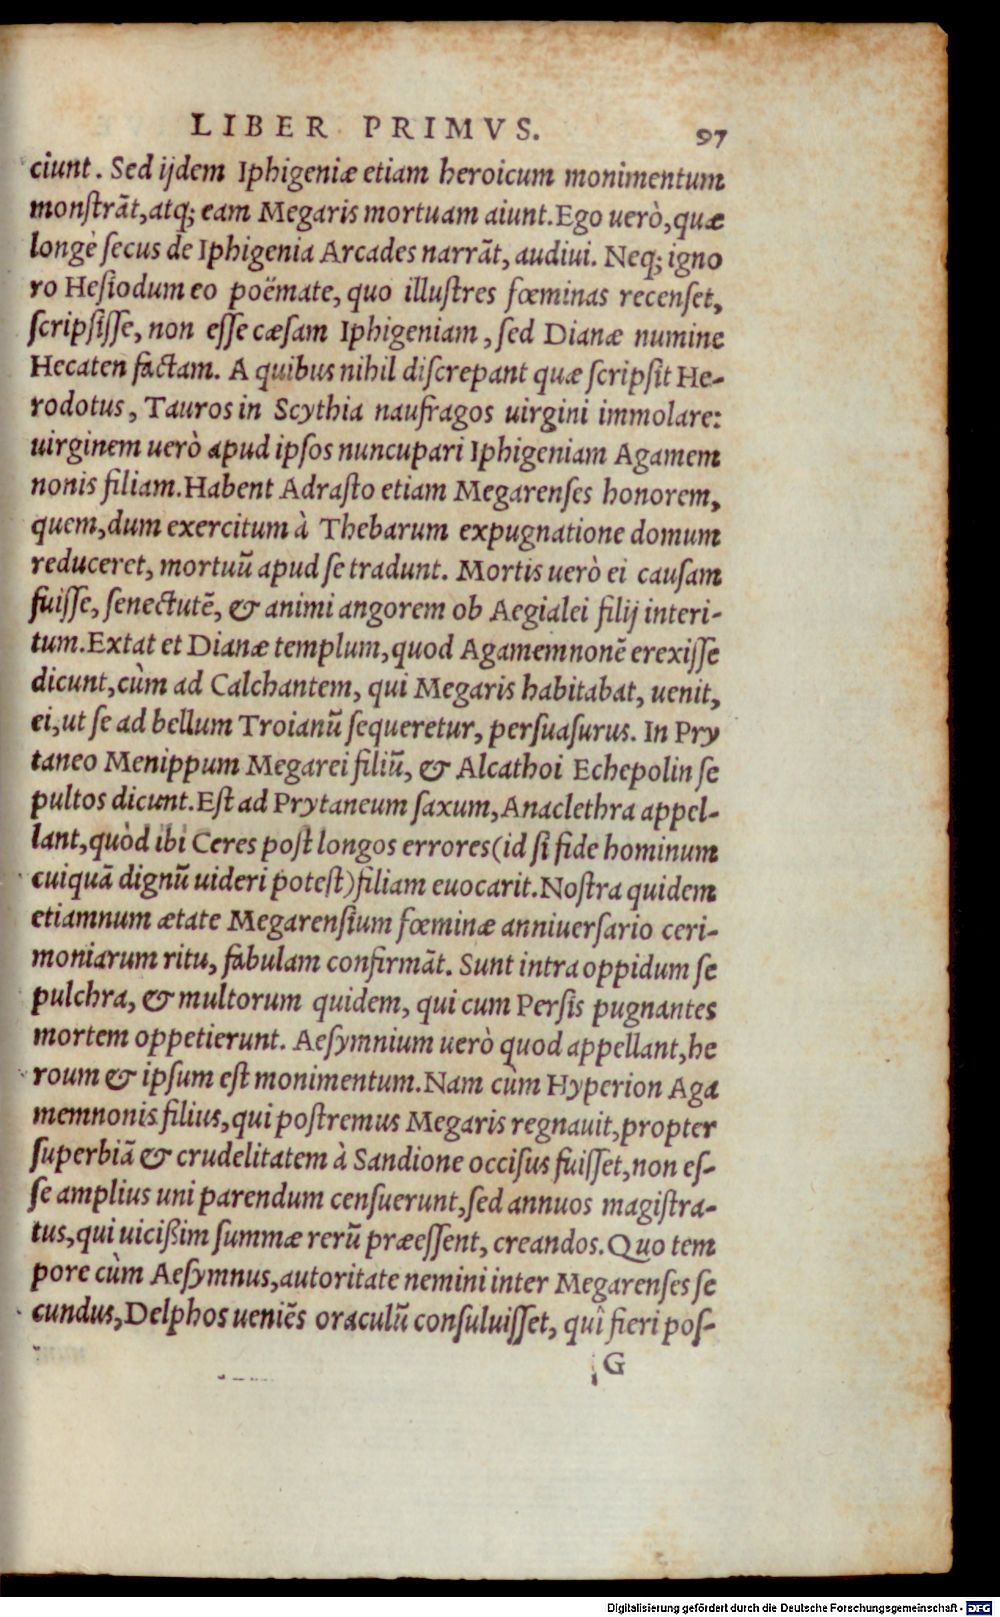 LIBER PRIMVS. 97
ciunt. Sed ijdem Iphigeniæ etiam heroicum monimentum
monſtrãt,atq; eam Megaris mortuam aiunt.Ego uerò,quæ
longè ſecus de Iphigenia Arcades narrãt, audiui. Neq; igno
ro Heſiodum eo poëmate, quo illuſtres fœminas recenſet,
ſcripſiſſe, non eſſe cæſam Iphigeniam, ſed Dianæ numine
Hecaten factam. A quibus nihil diſcrepant quæ ſcripſit He-
rodotus, Tauros in Scythia naufragos uirgini immolare:
uirginem uerò apud ipſos nuncupari Iphigeniam Agamem
nonis filiam.Habent Adraſto etiam Megarenſes honorem,
quem,dum exercitum à Thebarum expugnatione domum
reduceret, mortuũ apud ſe tradunt. Mortis uerò ei cauſam
fuiſſe, ſenectutẽ, & animi angorem ob Aegialei filij interi-
tum.Extat et Dianæ templum,quod Agamemnonẽ erexiſſe
dicunt,cùm ad Calchantem, qui Megaris habitabat, uenit,
ei,ut ſe ad bellum Troianũ ſequeretur, perſuaſurus. In Pry
taneo Menippum Megarei filiũ, & Alcathoi Echepolin ſe
pultos dicunt.Eſt ad Prytaneum ſaxum,Anaclethra appel-
lant,quòd ibi Ceres poſt longos errores(id ſi fide hominum
cuiquã dignũ uideri poteſt)filiam euocarit.Noſtra quidem
etiamnum ætate Megarenſium fœminæ anniuerſario ceri-
moniarum ritu, fabulam confirmãt. Sunt intra oppidum ſe
pulchra, & multorum quidem, qui cum Perſis pugnantes
mortem oppetierunt. Aeſymnium uerò quod appellant,he
roum & ipſum eſt monimentum.Nam cùm Hyperion Aga
memnonis filius,qui poſtremus Megaris regnauit,propter
ſuperbiã & crudelitatem à Sandione occiſus fuiſſet,non eſ-
ſe amplius uni parendum cenſuerunt,ſed annuos magiſtra-
tus,qui uicißim ſummæ rerũ præeſſent, creandos.Quo tem
pore cùm Aeſymnus,autoritate nemini inter Megarenſes ſe
cundus,Delphos ueniẽs oraculũ conſuluiſſet, quî fieri poſ-
G
Digitalisierung gefördert durch die Deutsche Forschungsgemeinschaft - DFG